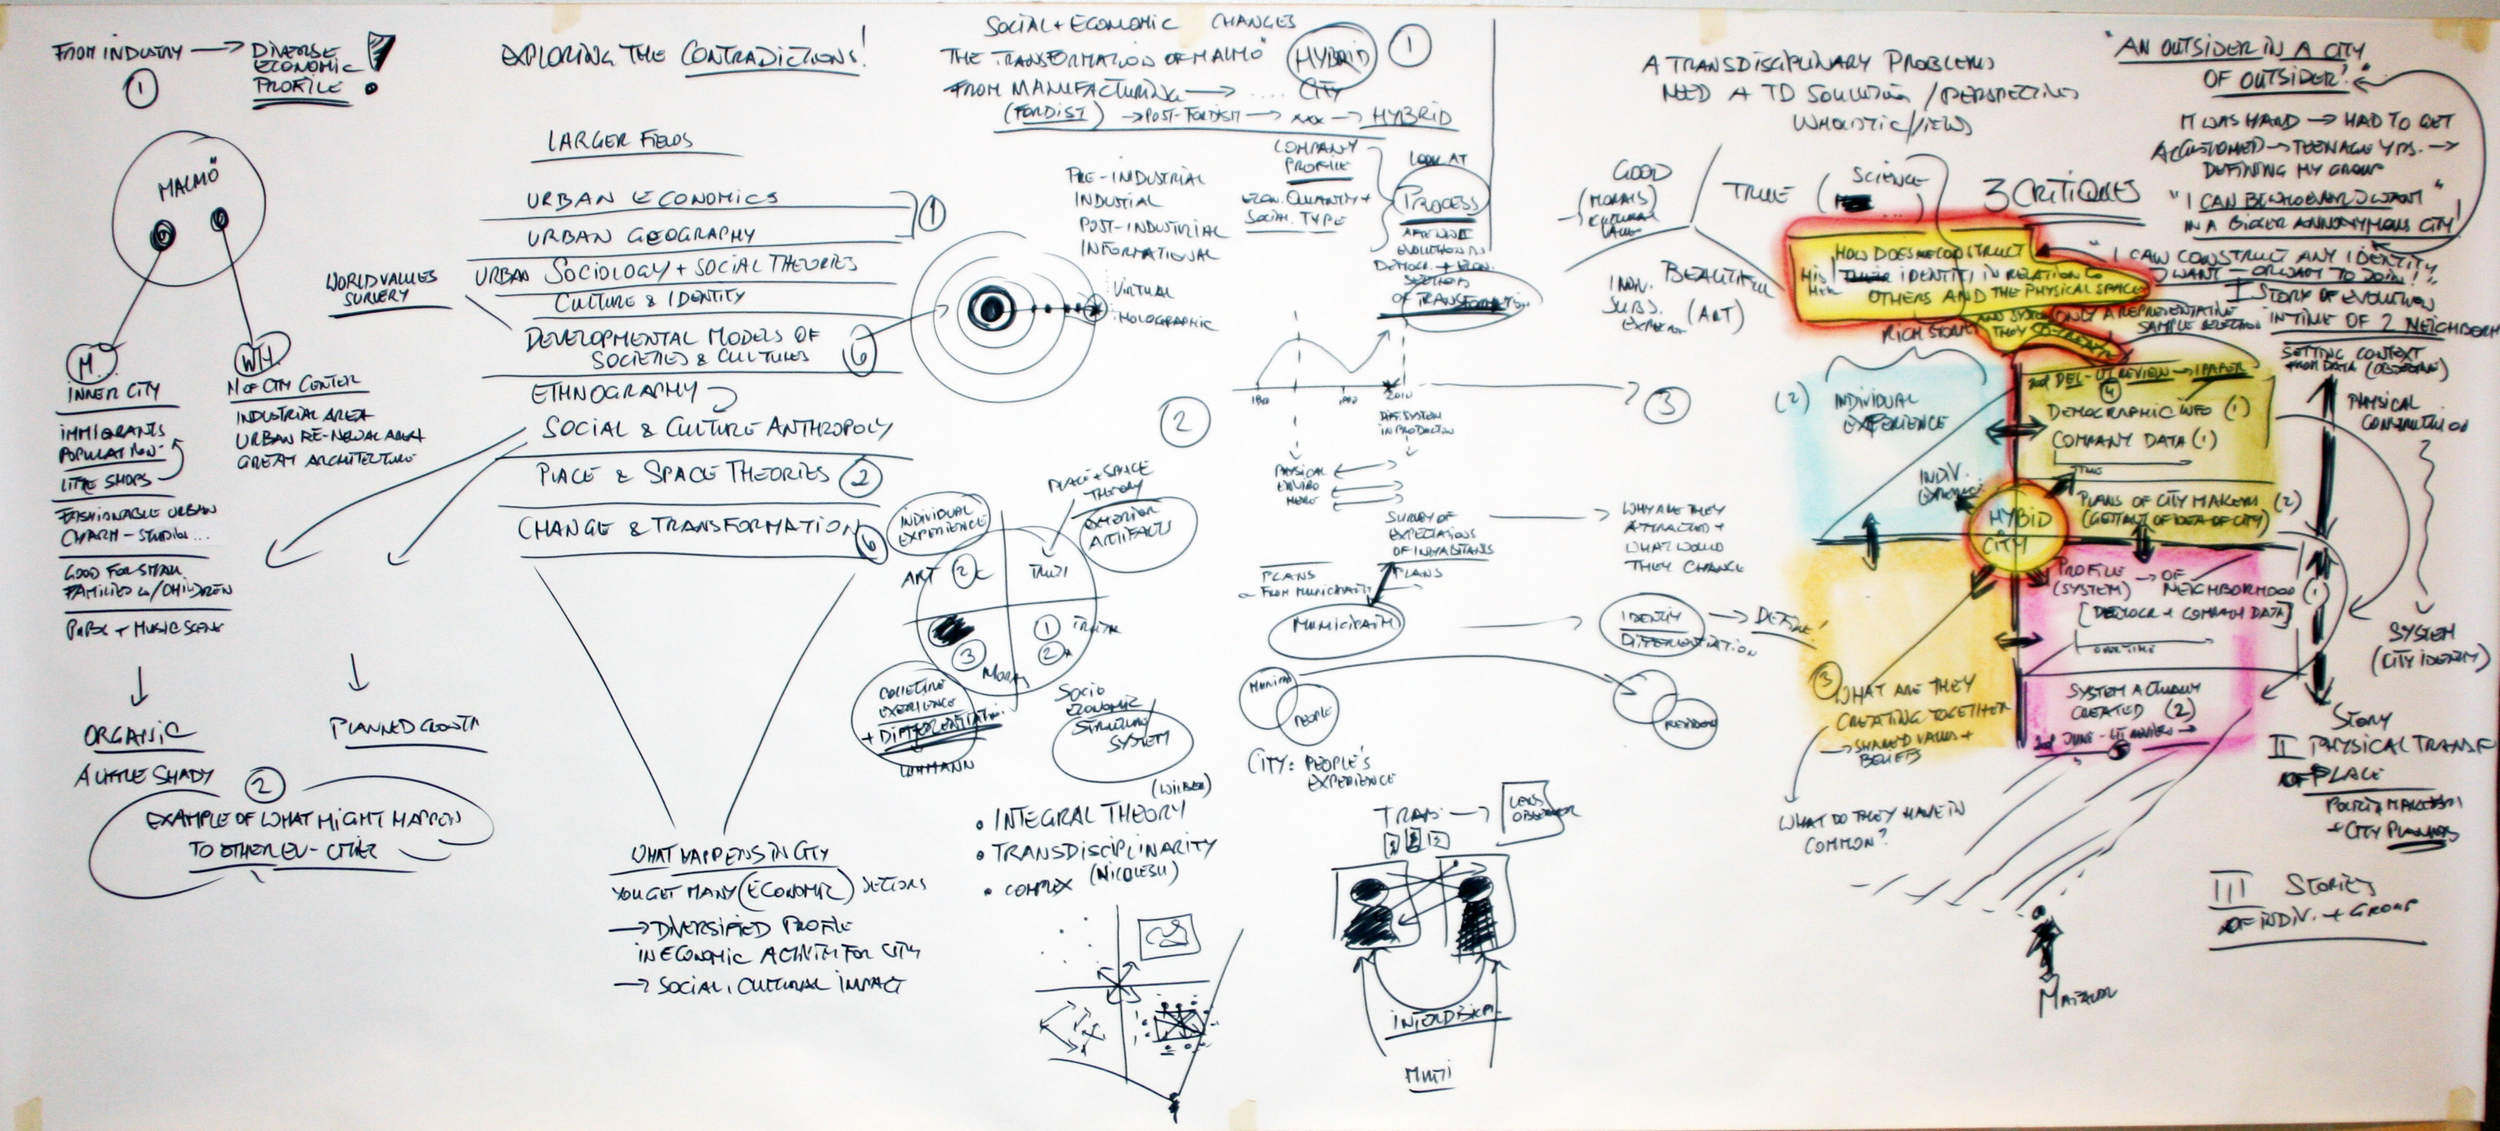 FROM INDUSTRY → DIVERSE
ECONOMIC
PROFILE !
1
MALMÖ
M
INNER CITY
IMMIGRANTS
POPULATION
LITTLE SHOPS
FASHIONABLE URBAN
CHARM - STUDIOS...
GOOD FOR SMALL
FAMILIES W/CHILDREN
PARK + MUSIC SCENE
ORGANIC
A LITTLE SHADY
N OF CITY CENTER
INDUSTRIAL AREA
URBAN RE-NEWAL AREA
GREAT ARCHITECTURE
PLANNED GROWTH
2
EXAMPLE OF WHAT MIGHT HAPPEN
TO OTHER EU-CITIES
EXPLORING THE CONTRADICTIONS!
LARGER FIELDS
URBAN ECONOMICS
1
URBAN GEOGRAPHY
URBAN SOCIOLOGY + SOCIAL THEORIES
CULTURE & IDENTITY
WORLD VALUES
SURVERY
DEVELOPMENTAL MODELS OF
SOCIETIES & CULTURES
6
ETHNOGRAPHY
SOCIAL & CULTURE ANTHROPOLY
PLACE & SPACE THEORIES 2
CHANGE & TRANSFORMATION 6
WHAT HAPPENS IN CITY
YOU GET MANY ECONOMIC SECTORS
→ DIVERSIFIED PROFILE
IN ECONOMIC ACTIVITY FOR CITY
→ SOCIAL, CULTURAL IMPACT
SOCIAL + ECONOMIC CHANGES
THE TRANSFORMATION OF MALMÖ HYBRID 1
FROM MANUFACTURING → .... CITY
(FORDIST) → POST-FORDIST → xxx → HYBRID
PRE-INDUSTRIAL
INDUSTIAL
POST-INDUSTRIAL
INFORMATIONAL
VIRTUAL
HOLOGRAPHIC
COMPANY
PROFILE
ECON. QUANTITY +
SOCIAL TYPE
LOOK AT
PROCESS
EVOLUTION IN
DEMOCR. + ECON.
SECTORS
OF TRANSFORMATION
2010
DIFF. SYSTEM
IN PRODUCTION
3
2
PLACE + SPACE
THEORY
INDIVIDUAL
EXPERIENCE
EXTERIOR
ARTIFACTS
ART 2
1 TRUTH
2
3
MORAL
COLLECTIVE
EXPERIENCE
+ DIFFERENTIATION
LUHMANN
SOCIO
ECONOMIC
STRUCTURE
SYSTEM
(WILBER)
• INTEGRAL THEORY
• TRANSDISCIPLINARITY
(NICOLESU)
• COMPLEX
PHYSICAL
ENVIRO
SURVEY OF
EXPECTATIONS
OF INHABITANTS
WHY ARE THEY
ATTRACTED +
WHAT WOULD
THEY CHANGE
PLANS
FROM MUNICIPALITY
PLANS
MUNICIPALITY
IDENTITY
DIFFERENTIATION
→ DEFINE!
PEOPLE
CITY: PEOPLE'S
EXPERIENCE
TRANS →
LENS
OBSERVER
MULTI
A TRANSDISCIPLINARY PROBLEMS
NEED A TD SOLUTION / PERSPECTIVES
WHOLISTIC VIEWS
GOOD
(MORALS)
TRUE
(SCIENCE
BEAUTIFUL
(ART)
INDV.
SUBS.
3 CRITIQUES
HOW DOES ME CONSTRUCT
HIS/HER IDENTITY IN RELATION TO
OTHERS AND THE PHYSICAL SPACE
AND SYSTEM
THEY CO-CREATE
RICH STORY
ONLY A REPRESENTATIVE
SAMPLE SELECTION
"AN OUTSIDER IN A CITY
OF OUTSIDER."
IT WAS HARD → HAD TO GET
ACCUSTOMED → TEENAGE YRS. →
DEFINING MY GROUP
"I CAN BE WHOEVER I WANT"
IN A BIGGER ANNONYMOUS CITY!
"I CAN CONSTRUCT ANY IDENTITY
I WANT - OR WANT TO JOIN!"
I STORY OF EVOLUTION
IN TIME OF 2 NEIGHBORH
SETTING CONTEXT
FROM DATA (OBJECTIVE)
(2) INDIVIDUAL
EXPERIENCE
INDIV.
4
DEMOGRAPHIC INFO (1)
COMPANY DATA (1)
TIME
PLANS OF CITY MAKERS (2)
(GESTALT OF IDEA OF CITY)
HYBID
CITY
PROFILE → OF
(SYSTEM) NEIGHBORHOOD (1)
[DEMOCR + COMPANY DATA]
OVER TIME
SYSTEM ACTUALLY
CREATED (2)
3 WHAT ARE THEY
CREATING TOGETHER
→ SHARED VALUES +
BELIEFS
WHAT DO THEY HAVE IN
COMMON?
PHYSICAL
CONSTRUCTION
SYSTEM
(CITY IDENTITY)
STORY
II PHYSICAL TRANSF
OF PLACE
+ CITY PLANNERS
III STORIES
OF INDIV. + GROUP